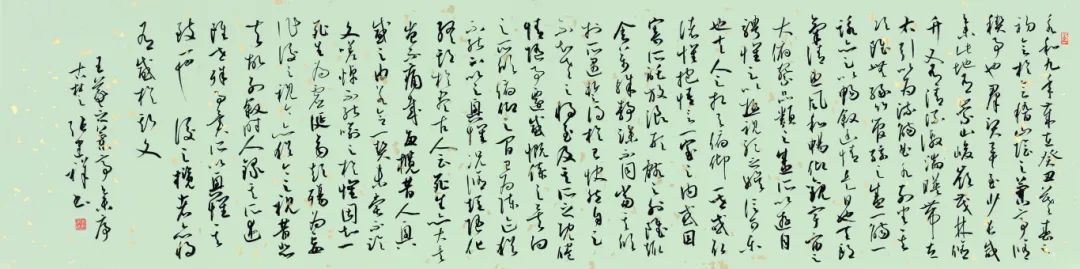 永和九年歲在癸丑暮春之
初會於會稽山陰之蘭亭脩
禊事也群賢畢至少長咸
集此地有崇山峻嶺茂林脩
竹又有清流激湍映帶左
右引以為流觴曲水列坐其
次雖無絲竹管絃之盛一觴一
詠亦足以暢敘幽情是日也天朗
氣清惠風和暢仰觀宇宙之
大俯察品類之盛所以遊目
騁懷足以極視聽之娛信可樂
也夫人之相與俯仰一世或取
諸懷抱悟言一室之內或因
寄所託放浪形骸之外雖趣
舍萬殊靜躁不同當其欣
於所遇暫得於己快然自足
不知老之將至及其所之既倦
情隨事遷感慨係之矣向
之所欣俯仰之間已為陳迹猶
不能不以之興懷況脩短隨化
終期於盡古人云死生亦大矣
豈不痛哉每攬昔人興
感之由若合一契未嘗不臨
文嗟悼不能喻之於懷固知一
死生為虛誕齊彭殤為妄
作後之視今亦猶今之視昔悲
夫故列敘時人錄其所述
雖世殊事異所以興懷其
致一也後之攬者亦將
有感於斯文
王羲之蘭亭集序
古楚張書